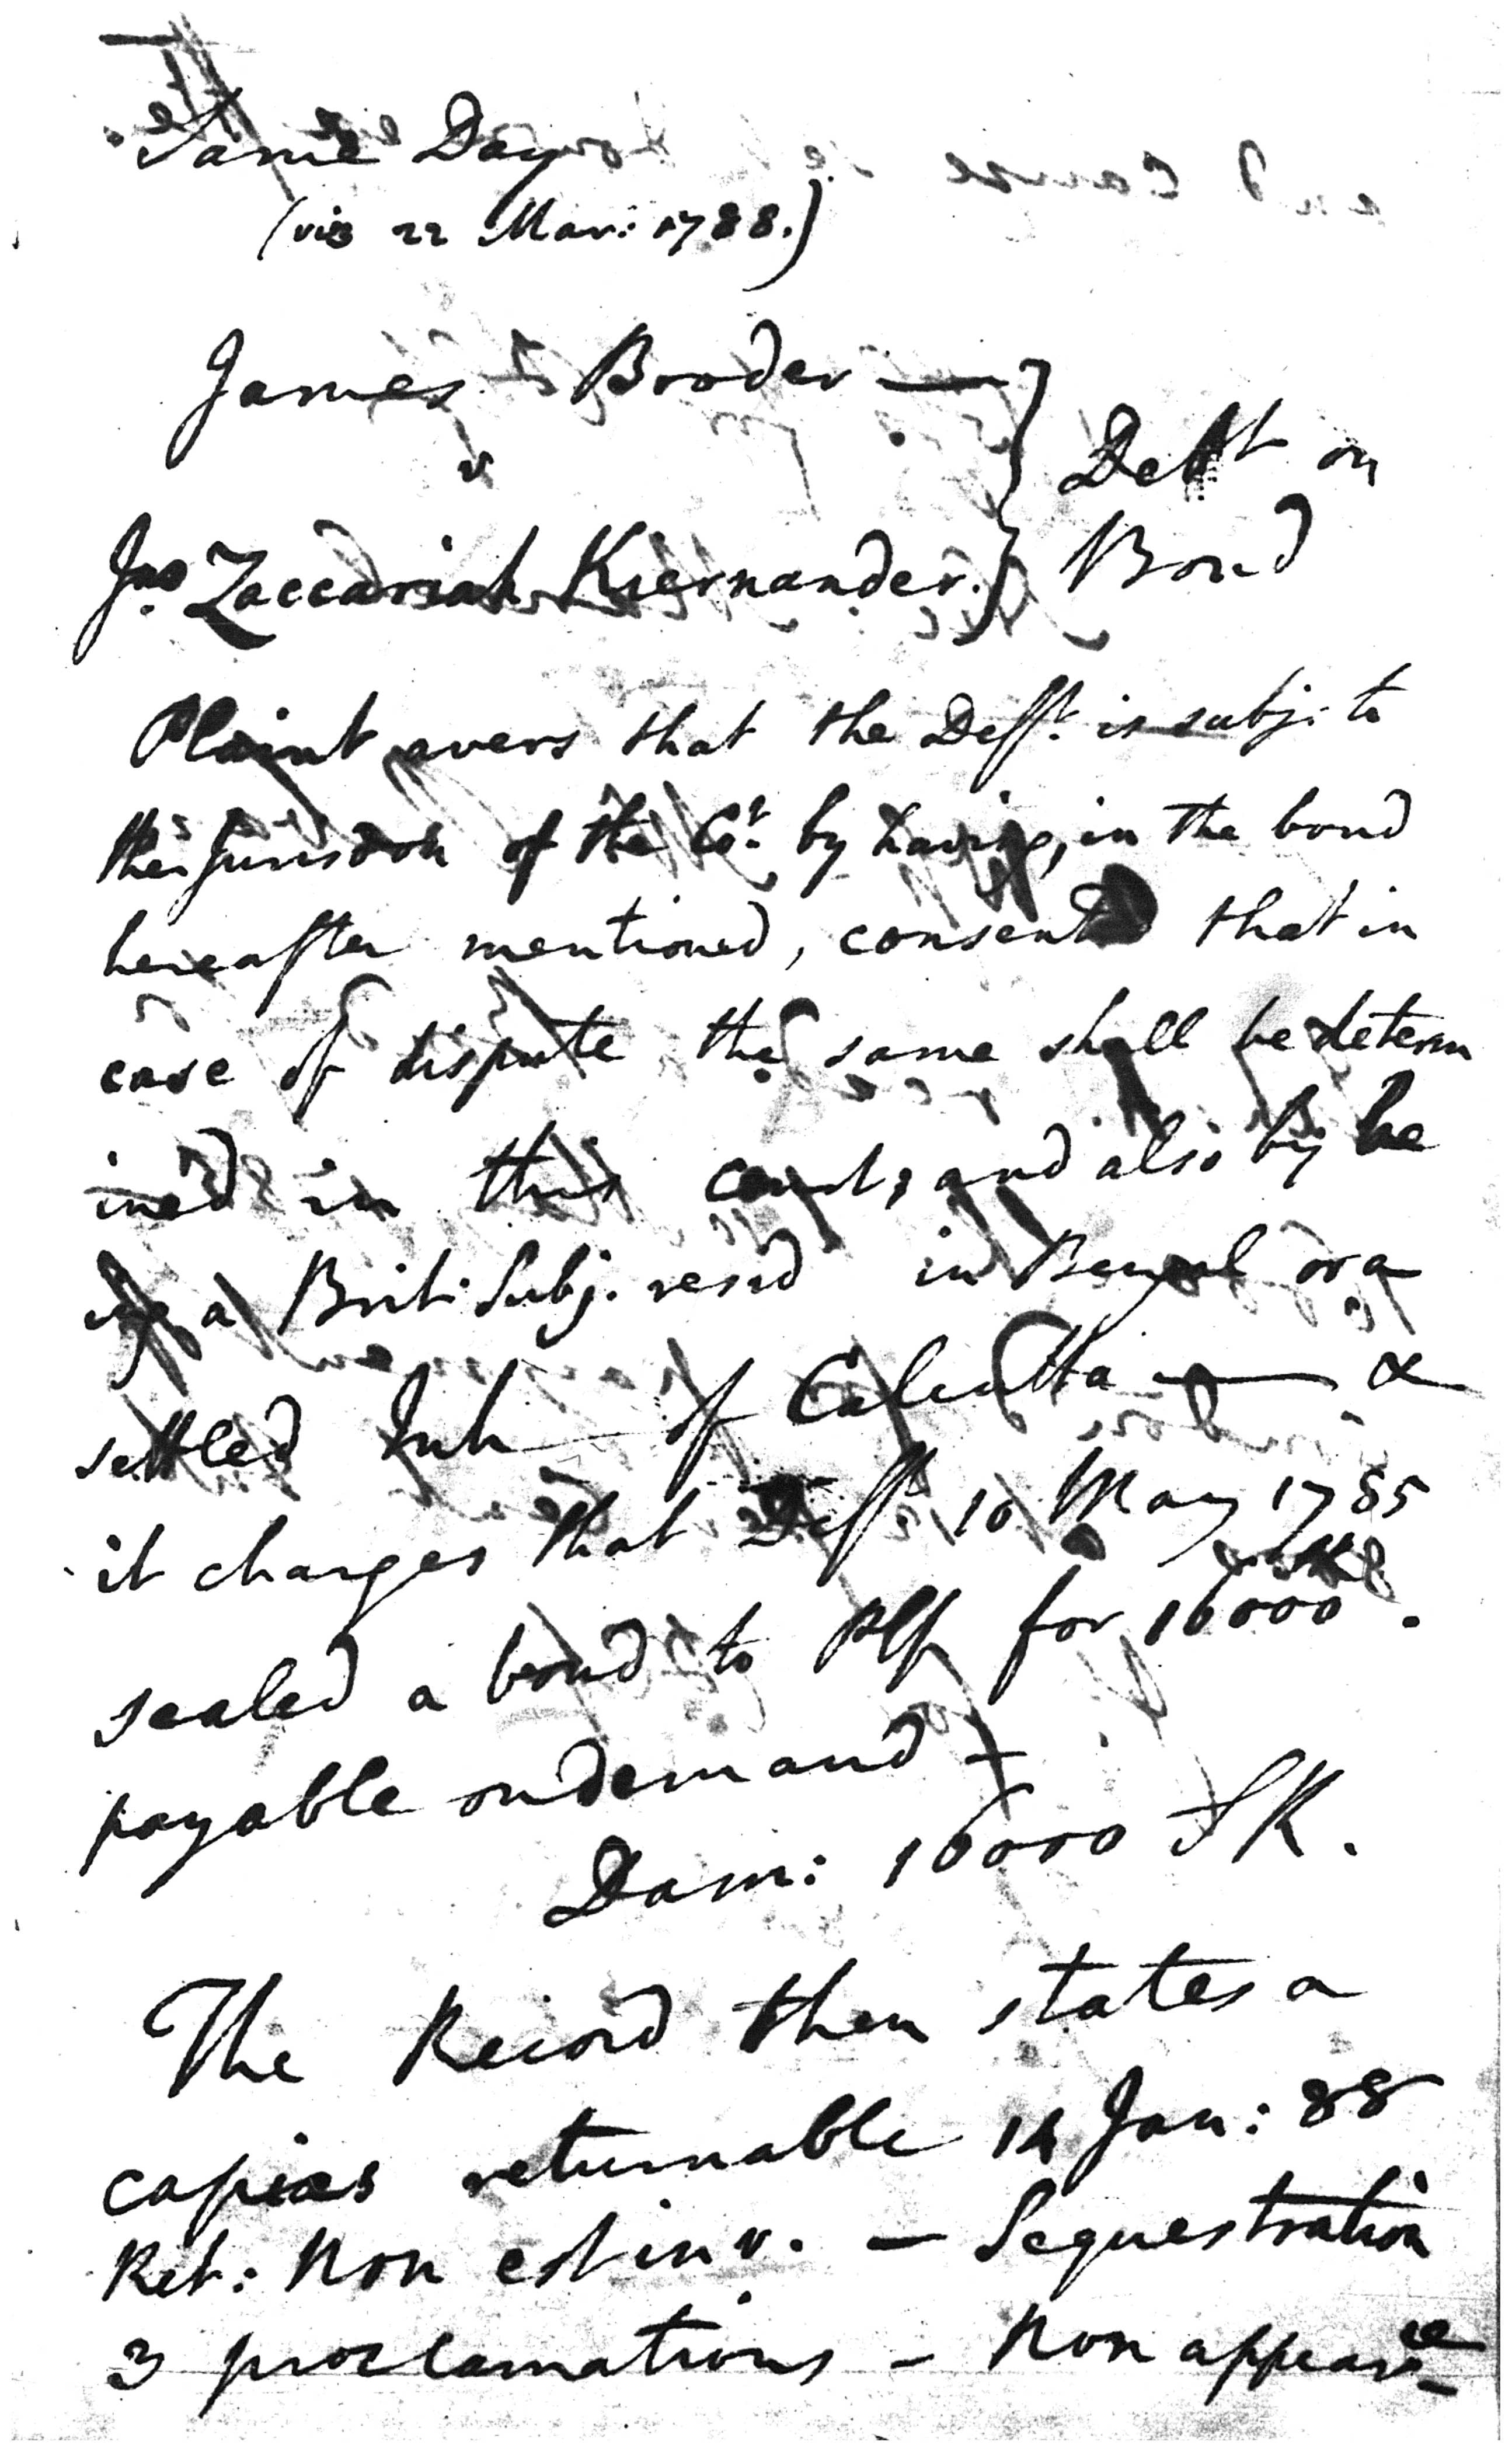 Same Day
(viz 22 Mar: 1788.)
James Broder —
v
Debt on
Jno. Zaccariah Kiernander.
Bond
Plaint avers that the Defft. is subj: to
the Jurisdon of the Ct. by having, in the bond
hereafter mentioned, consented that in
case of dispute the same shall be determ
ined in this court, and also by be
ing a Brit: Subj. resid in Bengal or a
settled Inh of Calcutta — &
it charges that Deff. 10 May 1785
sealed a bond to Plf for 16000
payable on demand —
Dam: 10000 SR.
The Record then states a
capias returnable 14 Jan: 88
Ret: Non est inv. — Sequestration
3 proclamations — Non appearce